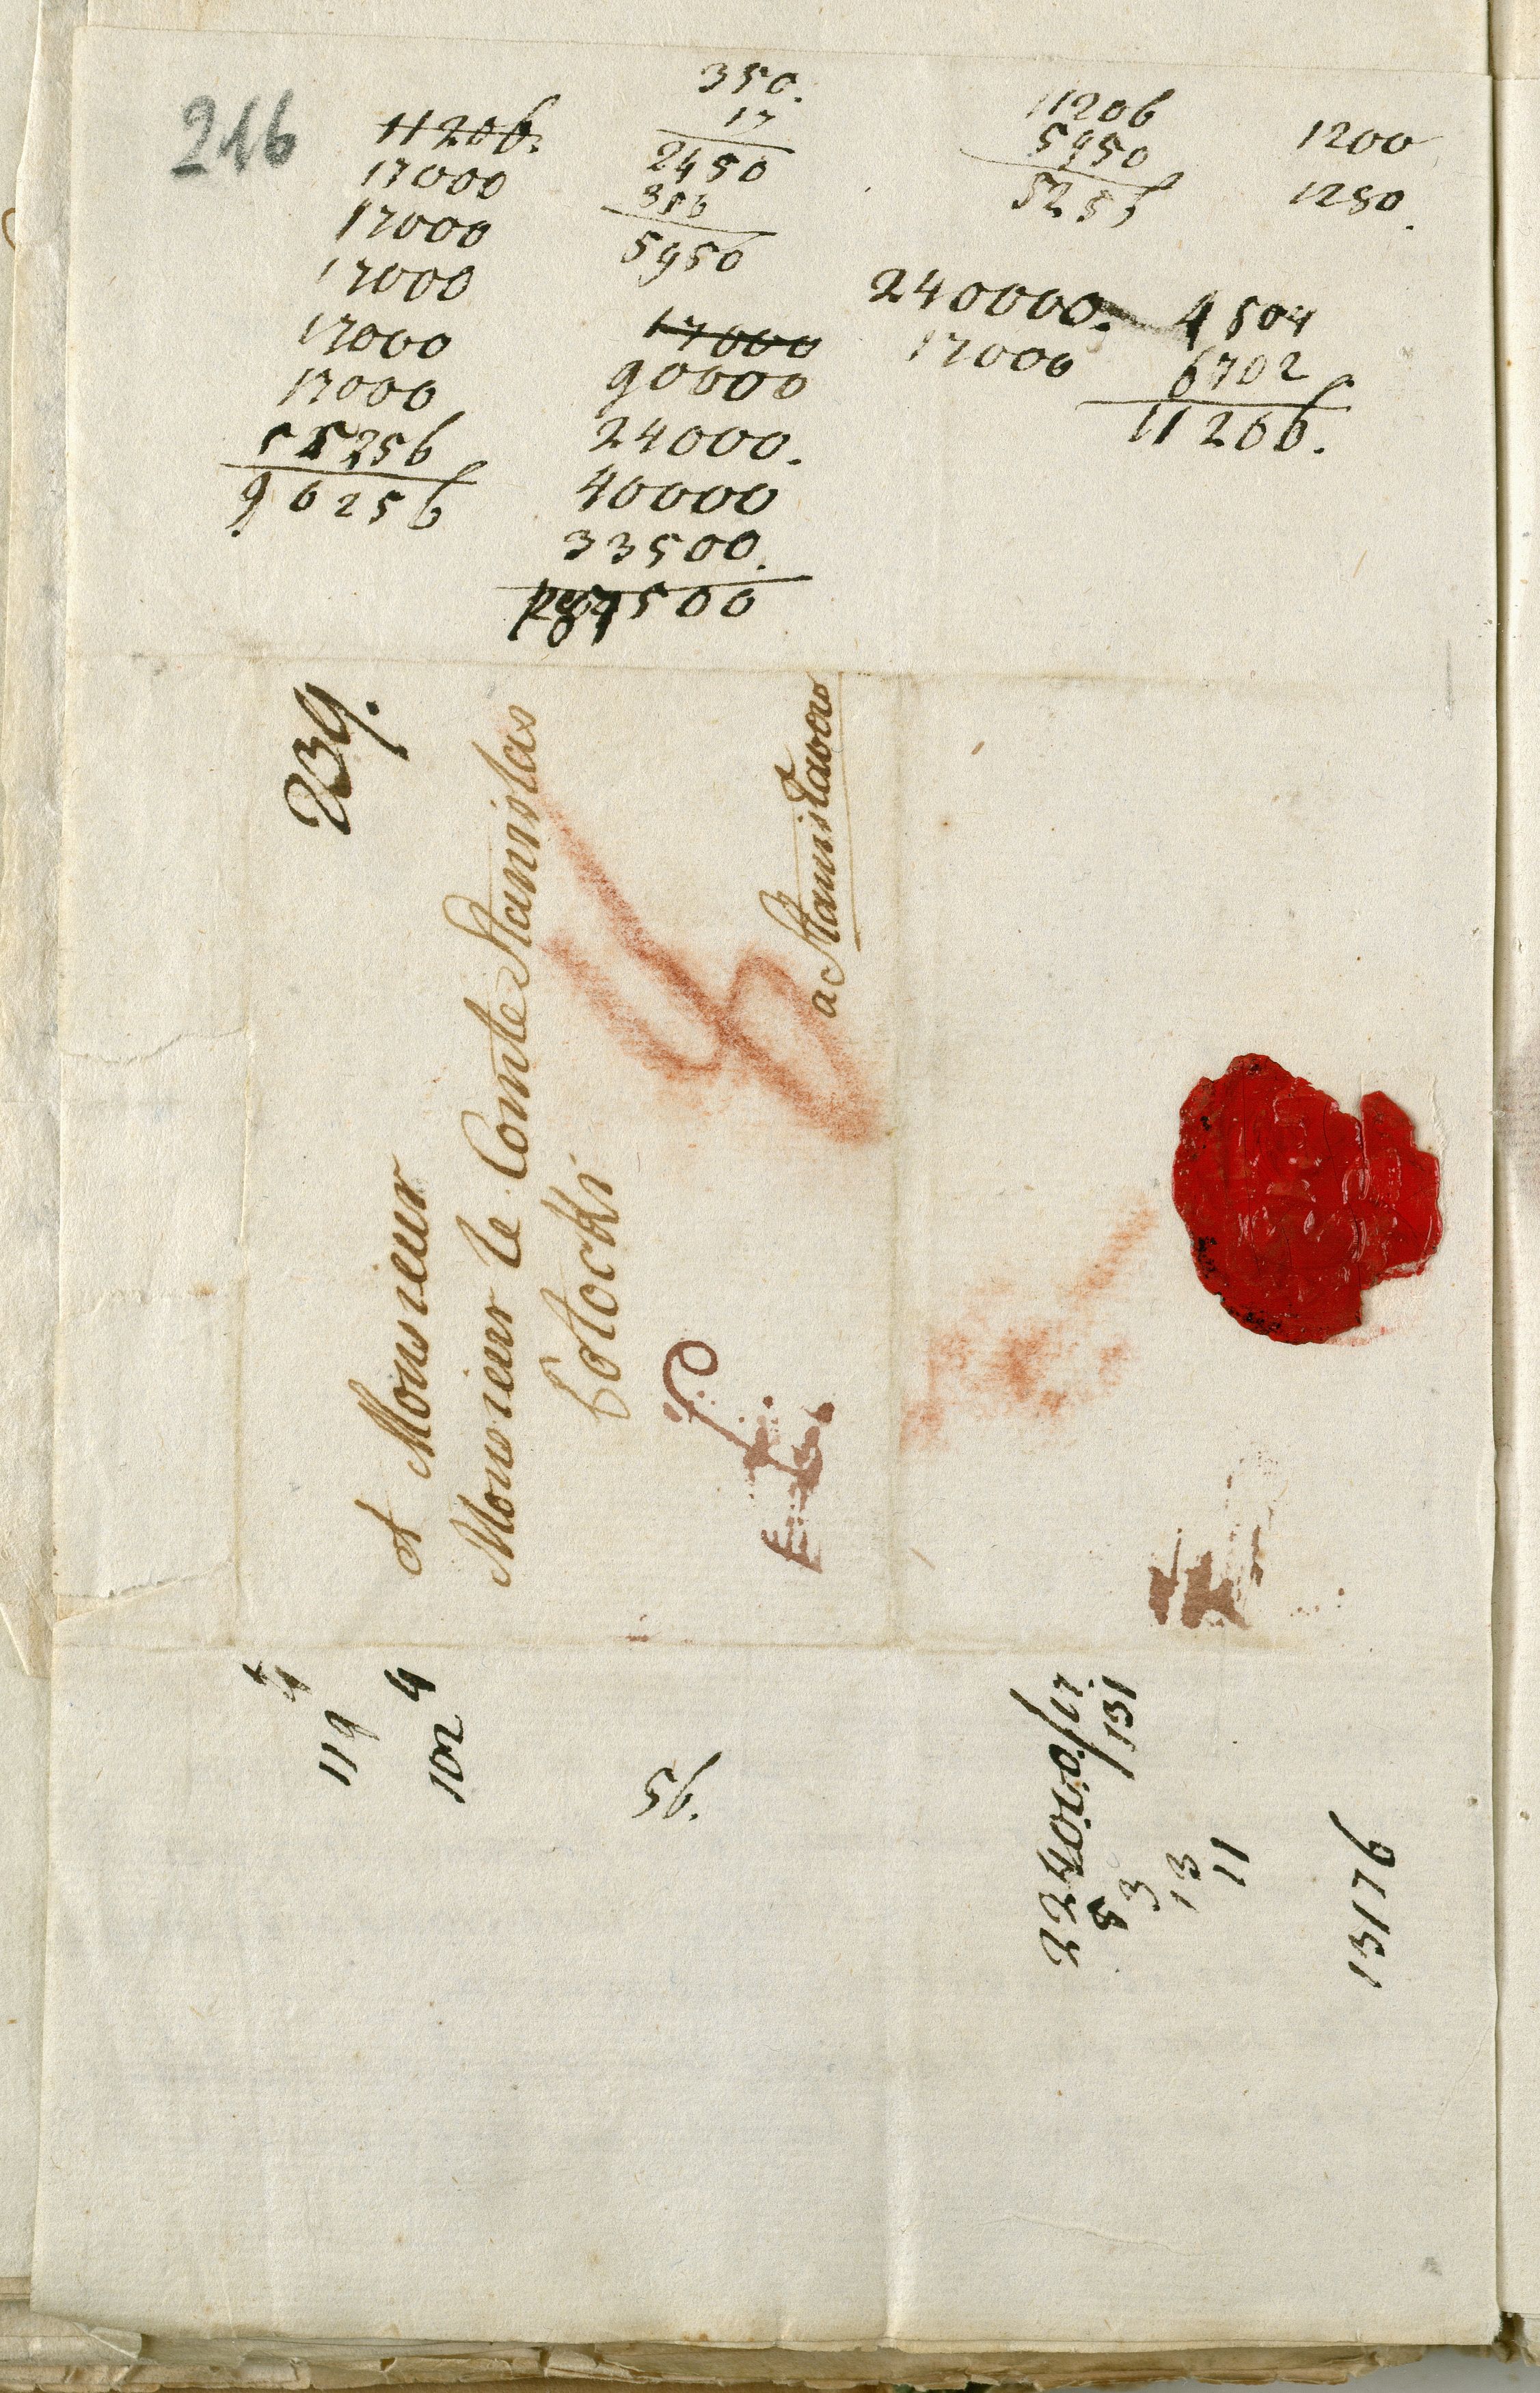 216
11206.
17000
17000
17000
17000
17000
5256
90256
350.
17
2450
350
5950
17000
90000
24000.
40000
33500.
500
11206
5950
5256
1200
1250.
240000.
17000
4504
6702
11206.
239.
A Monsieur
Monsieur le Comte Stanislas
Potocki
a Stanisławow
4
119
4
102
56.
131
3
13
11
13176